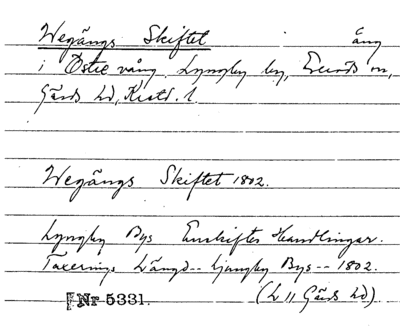 Wegångs Skiftet äng
i Östre vång. Lyngby by, Everöds sn,
Gärds hd, Krist. l.
Wegångs Skiftet 1802.
Lyngby Bys Enskiftes Handlingar.
Taxerings Längd -- Ljungby Bys -- 1802.
Nr 5331. (L 11 Gärds hd).